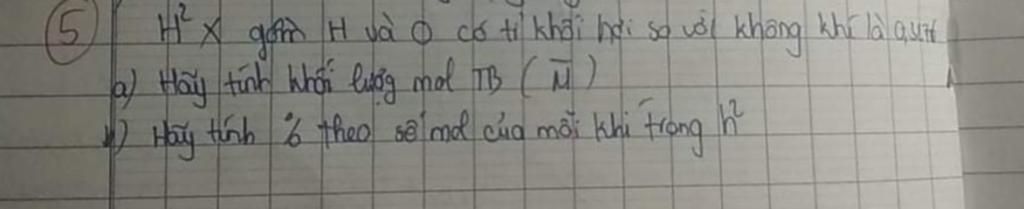 5 H² X gồm H và O có tỉ khối hơi so với không khí là
a) Hãy tính khối lượng mol TB (M̄)
b) Hãy tính % theo số mol của mỗi khí trong h²